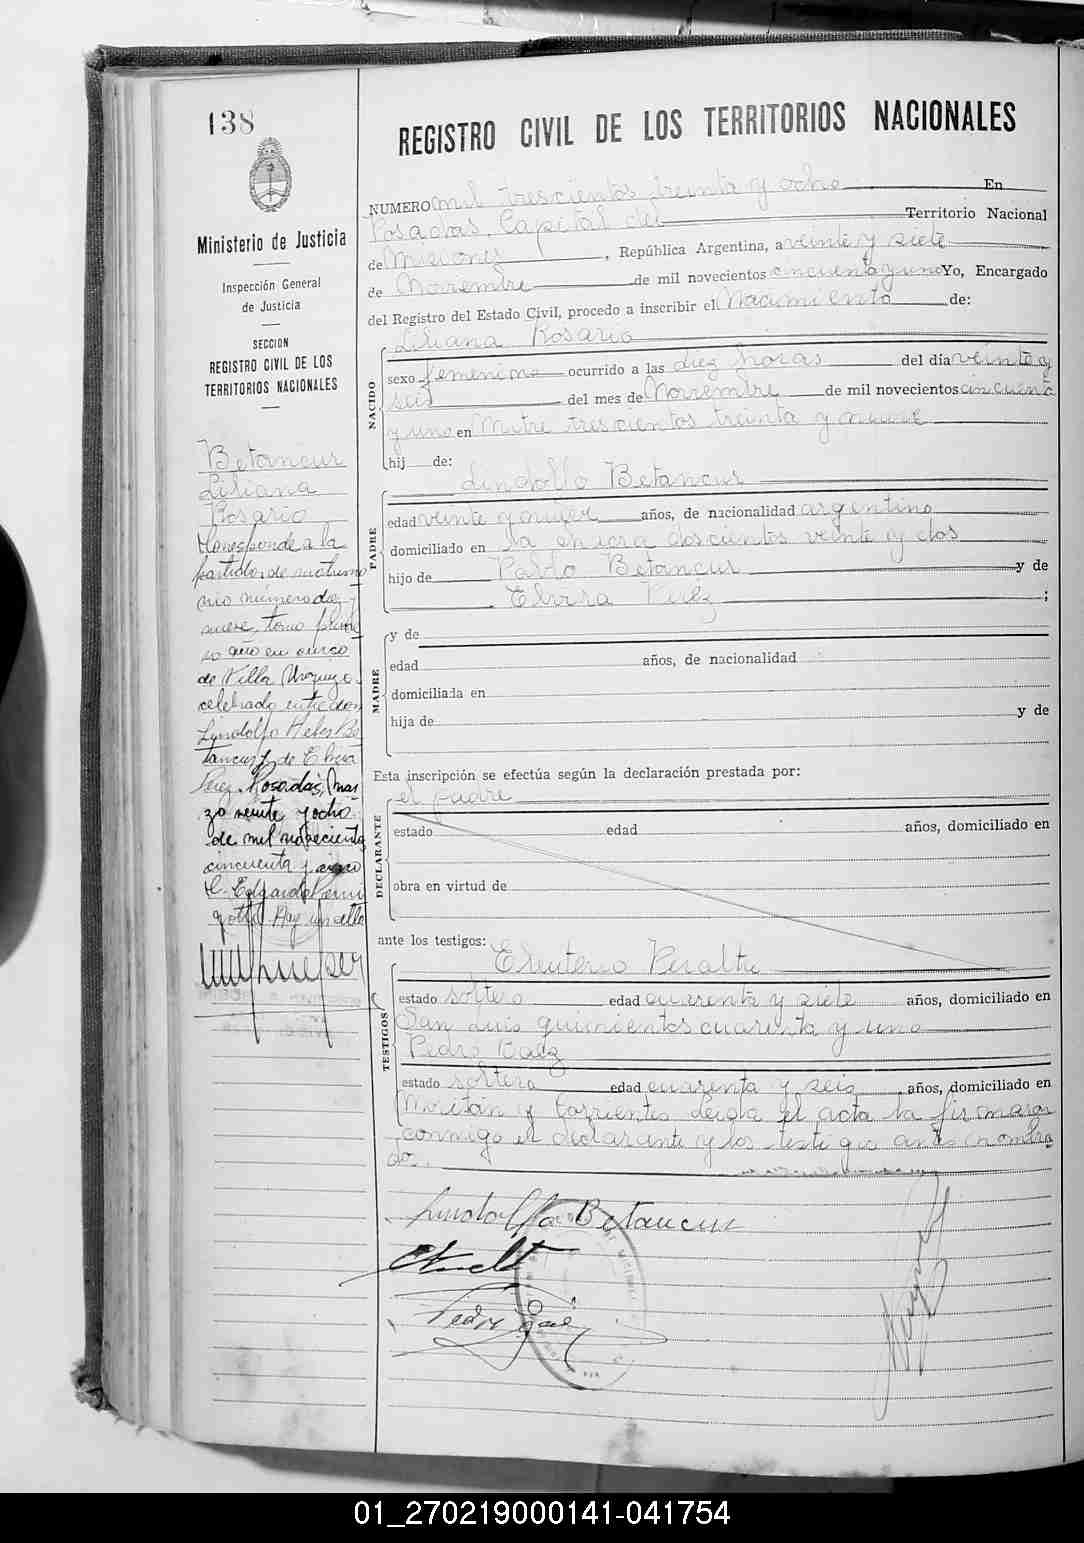 138
REGISTRO CIVIL DE LOS TERRITORIOS NACIONALES
Ministerio de Justicia
Inspección General
de Justicia
SECCION
REGISTRO CIVIL DE LOS
TERRITORIOS NACIONALES
Betancur
Liliana
Rosario
Corresponde a la
partida de matrimo
nio número diez y
nueve, tomo prime
ro año en curso
de Villa Urquiza
celebrado entre don
Lindolfo Heber Be
tancur y de Elvira
Perez. Posadas, Mar
zo veinte y ocho
de mil novecientos
cincuenta y cinco
NUMERO mil trescientos treinta y ocho En
Posadas, Capital del Territorio Nacional
de Misiones, República Argentina, a veinte y siete
de Noviembre de mil novecientos cincuenta y uno Yo, Encargado
del Registro del Estado Civil, procedo a inscribir el Nacimiento de:
NACIDO
Liliana Rosario
sexo femenino ocurrido a las diez horas del día veinte y
seis del mes de Noviembre de mil novecientos cincuenta
y uno en Mitre trescientos treinta y nueve
hij de:
PADRE
Lindolfo Betancur
edad veinte y años, de nacionalidad argentino
domiciliado en la chacra doscientos veinte y dos
hijo de Pablo Betancur y de
Elvira Perez ;
MADRE
y de
edad años, de nacionalidad
domiciliada en
hija de y de
Esta inscripción se efectúa según la declaración prestada por:
DECLARANTE
el padre
estado edad años, domiciliado en
obra en virtud de
ante los testigos:
TESTIGOS
Eleuterio Peralta
estado soltero edad cuarenta y siete años, domiciliado en
San Luis quinientos cuarenta y uno
Pedro Baez
estado soltero edad cuarenta y seis años, domiciliado en
y Corrientes Leida el acta la firmaron
conmigo el declarante y los testigos antes nombra
dos.
Lindolfo Betancur
Pedro Baez
01_270219000141-041754